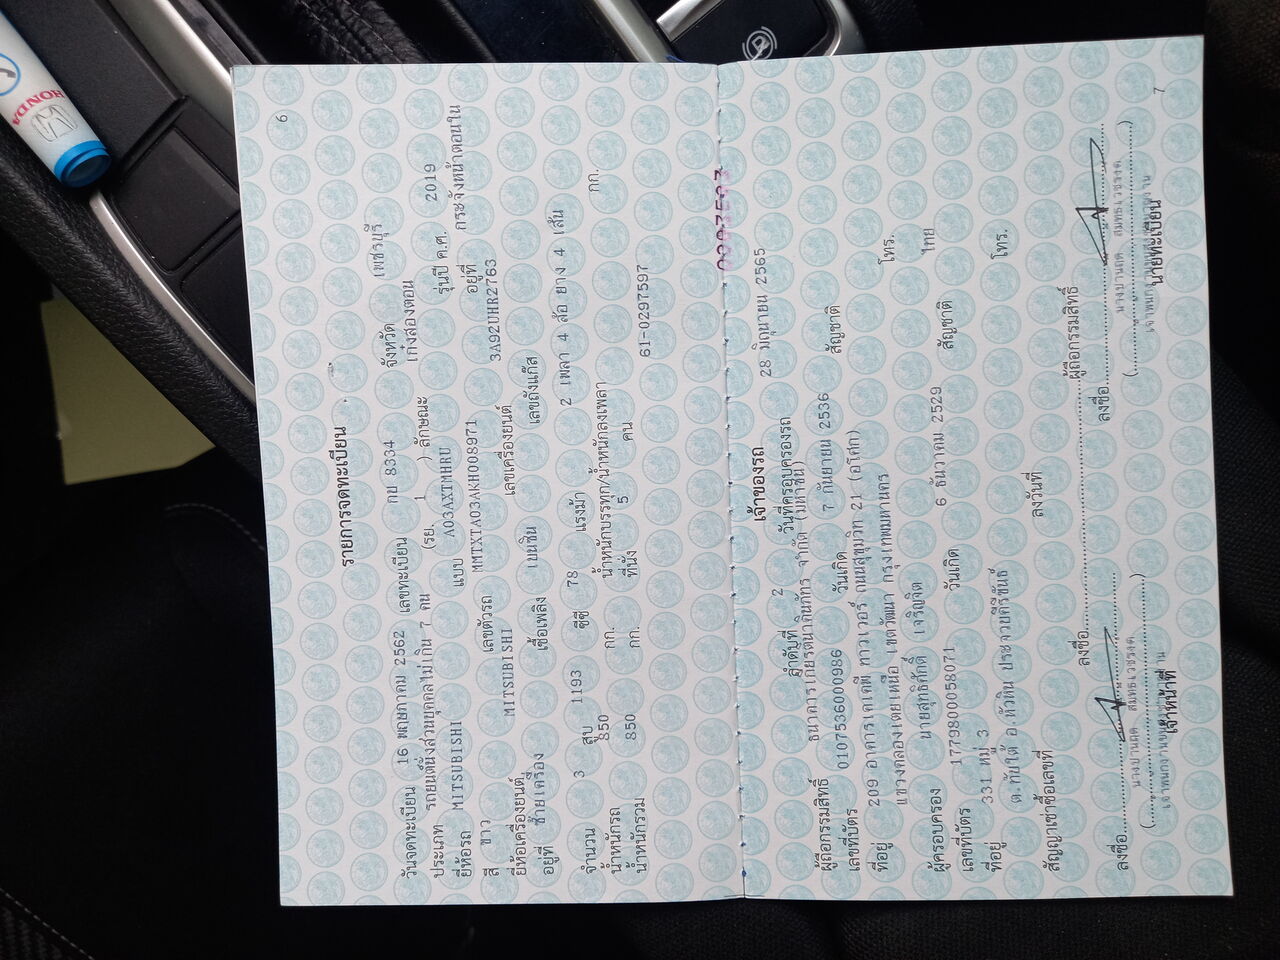 6
รายการจดทะเบียน
วันจดทะเบียน 16 พฤษภาคม 2562 เลขทะเบียน กบ 8334 จังหวัด เพชรบุรี
ประเภท รถยนต์นั่งส่วนบุคคลไม่เกิน 7 คน (รย. 1 ) ลักษณะ เก๋งสองตอน
ยี่ห้อรถ MITSUBISHI แบบ A03AXTMHRU รุ่นปี ค.ศ. 2019
สี ขาว เลขตัวรถ MMTXTA03AKH008971 อยู่ที่ กระจังหน้าตอนใน
ยี่ห้อเครื่องยนต์ MITSUBISHI เลขเครื่องยนต์ 3A92UHR2763
อยู่ที่ ซ้ายเครื่อง เชื้อเพลิง เบนซิน เลขถังแก๊ส
จำนวน 3 สูบ 1193 ซีซี 78 แรงม้า 2 เพลา 4 ล้อ ยาง 4 เส้น
น้ำหนักรถ 850 กก. น้ำหนักบรรทุก/น้ำหนักลงเพลา กก.
น้ำหนักรวม 850 กก. ที่นั่ง 5 คน 61-0297597
เจ้าของรถ
ลำดับที่ 2 วันที่ครอบครองรถ 28 มิถุนายน 2565
ผู้ถือกรรมสิทธิ์ ธนาคารเกียรตินาคินภัทร จำกัด (มหาชน)
เลขที่บัตร 0107536000986 วันเกิด 7 กันยายน 2536 สัญชาติ
ที่อยู่ 209 อาคารเคเคพี ทาวเวอร์ ถนนสุขุมวิท 21 (อโศก)
แขวงคลองเตยเหนือ เขตวัฒนา กรุงเทพมหานคร โทร.
ผู้ครอบครอง นายสุทธิศักดิ์ เจริญจิต
เลขที่บัตร 1779800058071 วันเกิด 6 ธันวาคม 2529 สัญชาติ ไทย
ที่อยู่ 331 หมู่ 3
ต.ทับใต้ อ.หัวหิน ประจวบคีรีขันธ์ โทร.
สัญญาเช่าซื้อเลขที่ ลงวันที่
ลงชื่อ ผู้ถือกรรมสิทธิ์
ลงชื่อ ลงชื่อ
เจ้าหน้าที่ นายทะเบียน
7
HONDA